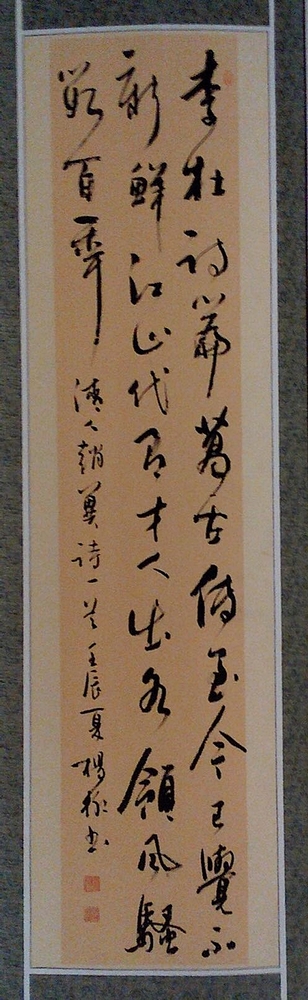 李杜詩篇萬古傳至今已覺不
新鮮江山代有才人出各領風騷
數百年 清人趙翼詩一首壬辰夏楊書